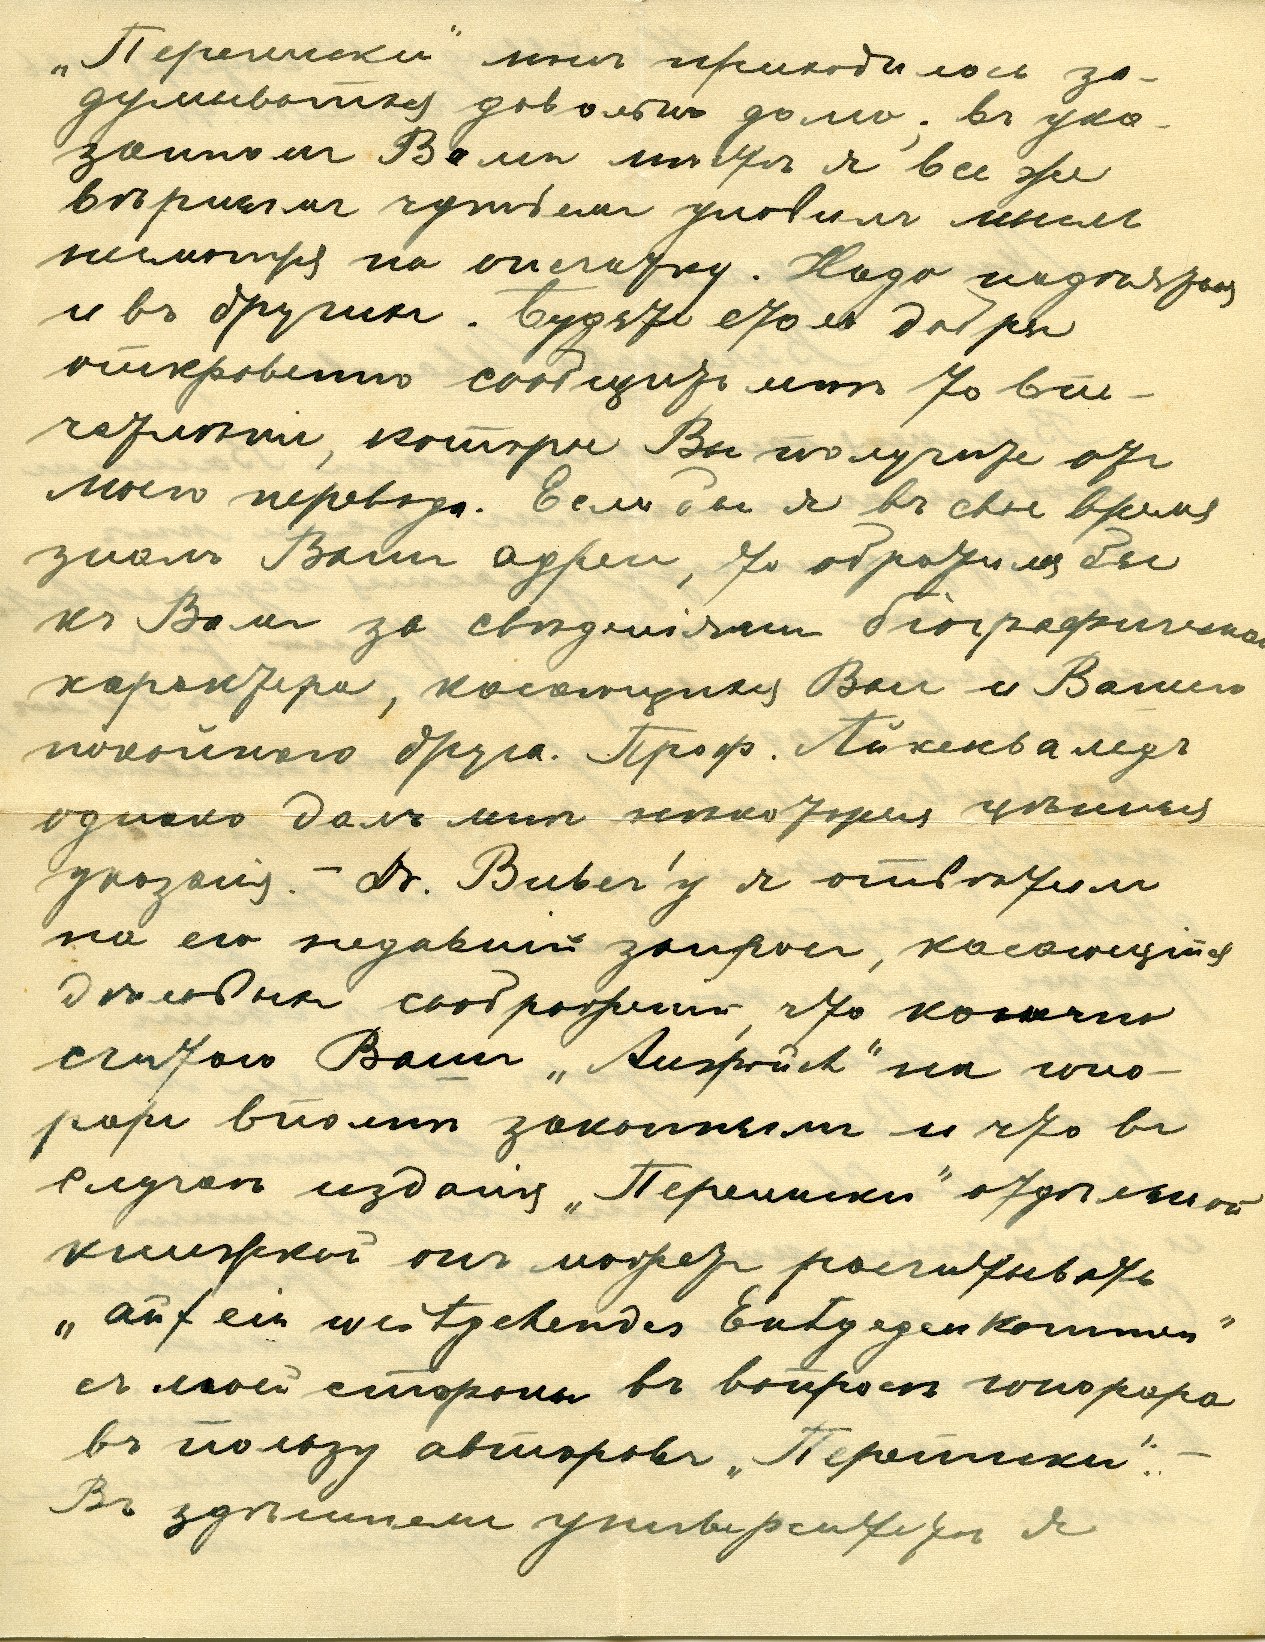 „Переписки" мнѣ приходилось за-
думываться довольно долго; въ ука-
занномъ Вами мѣстѣ я все же
вѣрнымъ чутьемъ уловилъ мысль
несмотря на опечатку. Надо надѣяться
и въ другихъ. Будьте столь добры
откровенно сообщить мнѣ то впе-
чатлѣніе, которое Вы получите отъ
моего перевода. Если бы я въ свое время
зналъ Вашъ адресъ, то обратился бы
къ Вамъ за свѣдѣніями біографическаго
характера, касающихся Васъ и Вашего
покойнаго друга. Проф. Айхенвальдъ
однако далъ мнѣ нѣкоторыя цѣнныя
указанія. — Dr. Buber'у я отвѣтилъ
на его недавній запросъ, касающійся
дѣловыхъ соображеній, что конечно
считаю Вашъ „Anspruch" на гоно-
раръ вполнѣ законнымъ и что въ
случаѣ изданія „Переписки" отдѣльной
книжкой онъ можетъ расчитывать
„auf ein weitgehendes Entgegenkommen"
съ моей стороны въ вопросѣ гонорара
въ пользу авторовъ „Переписки". —
Въ здѣшнемъ университетѣ я